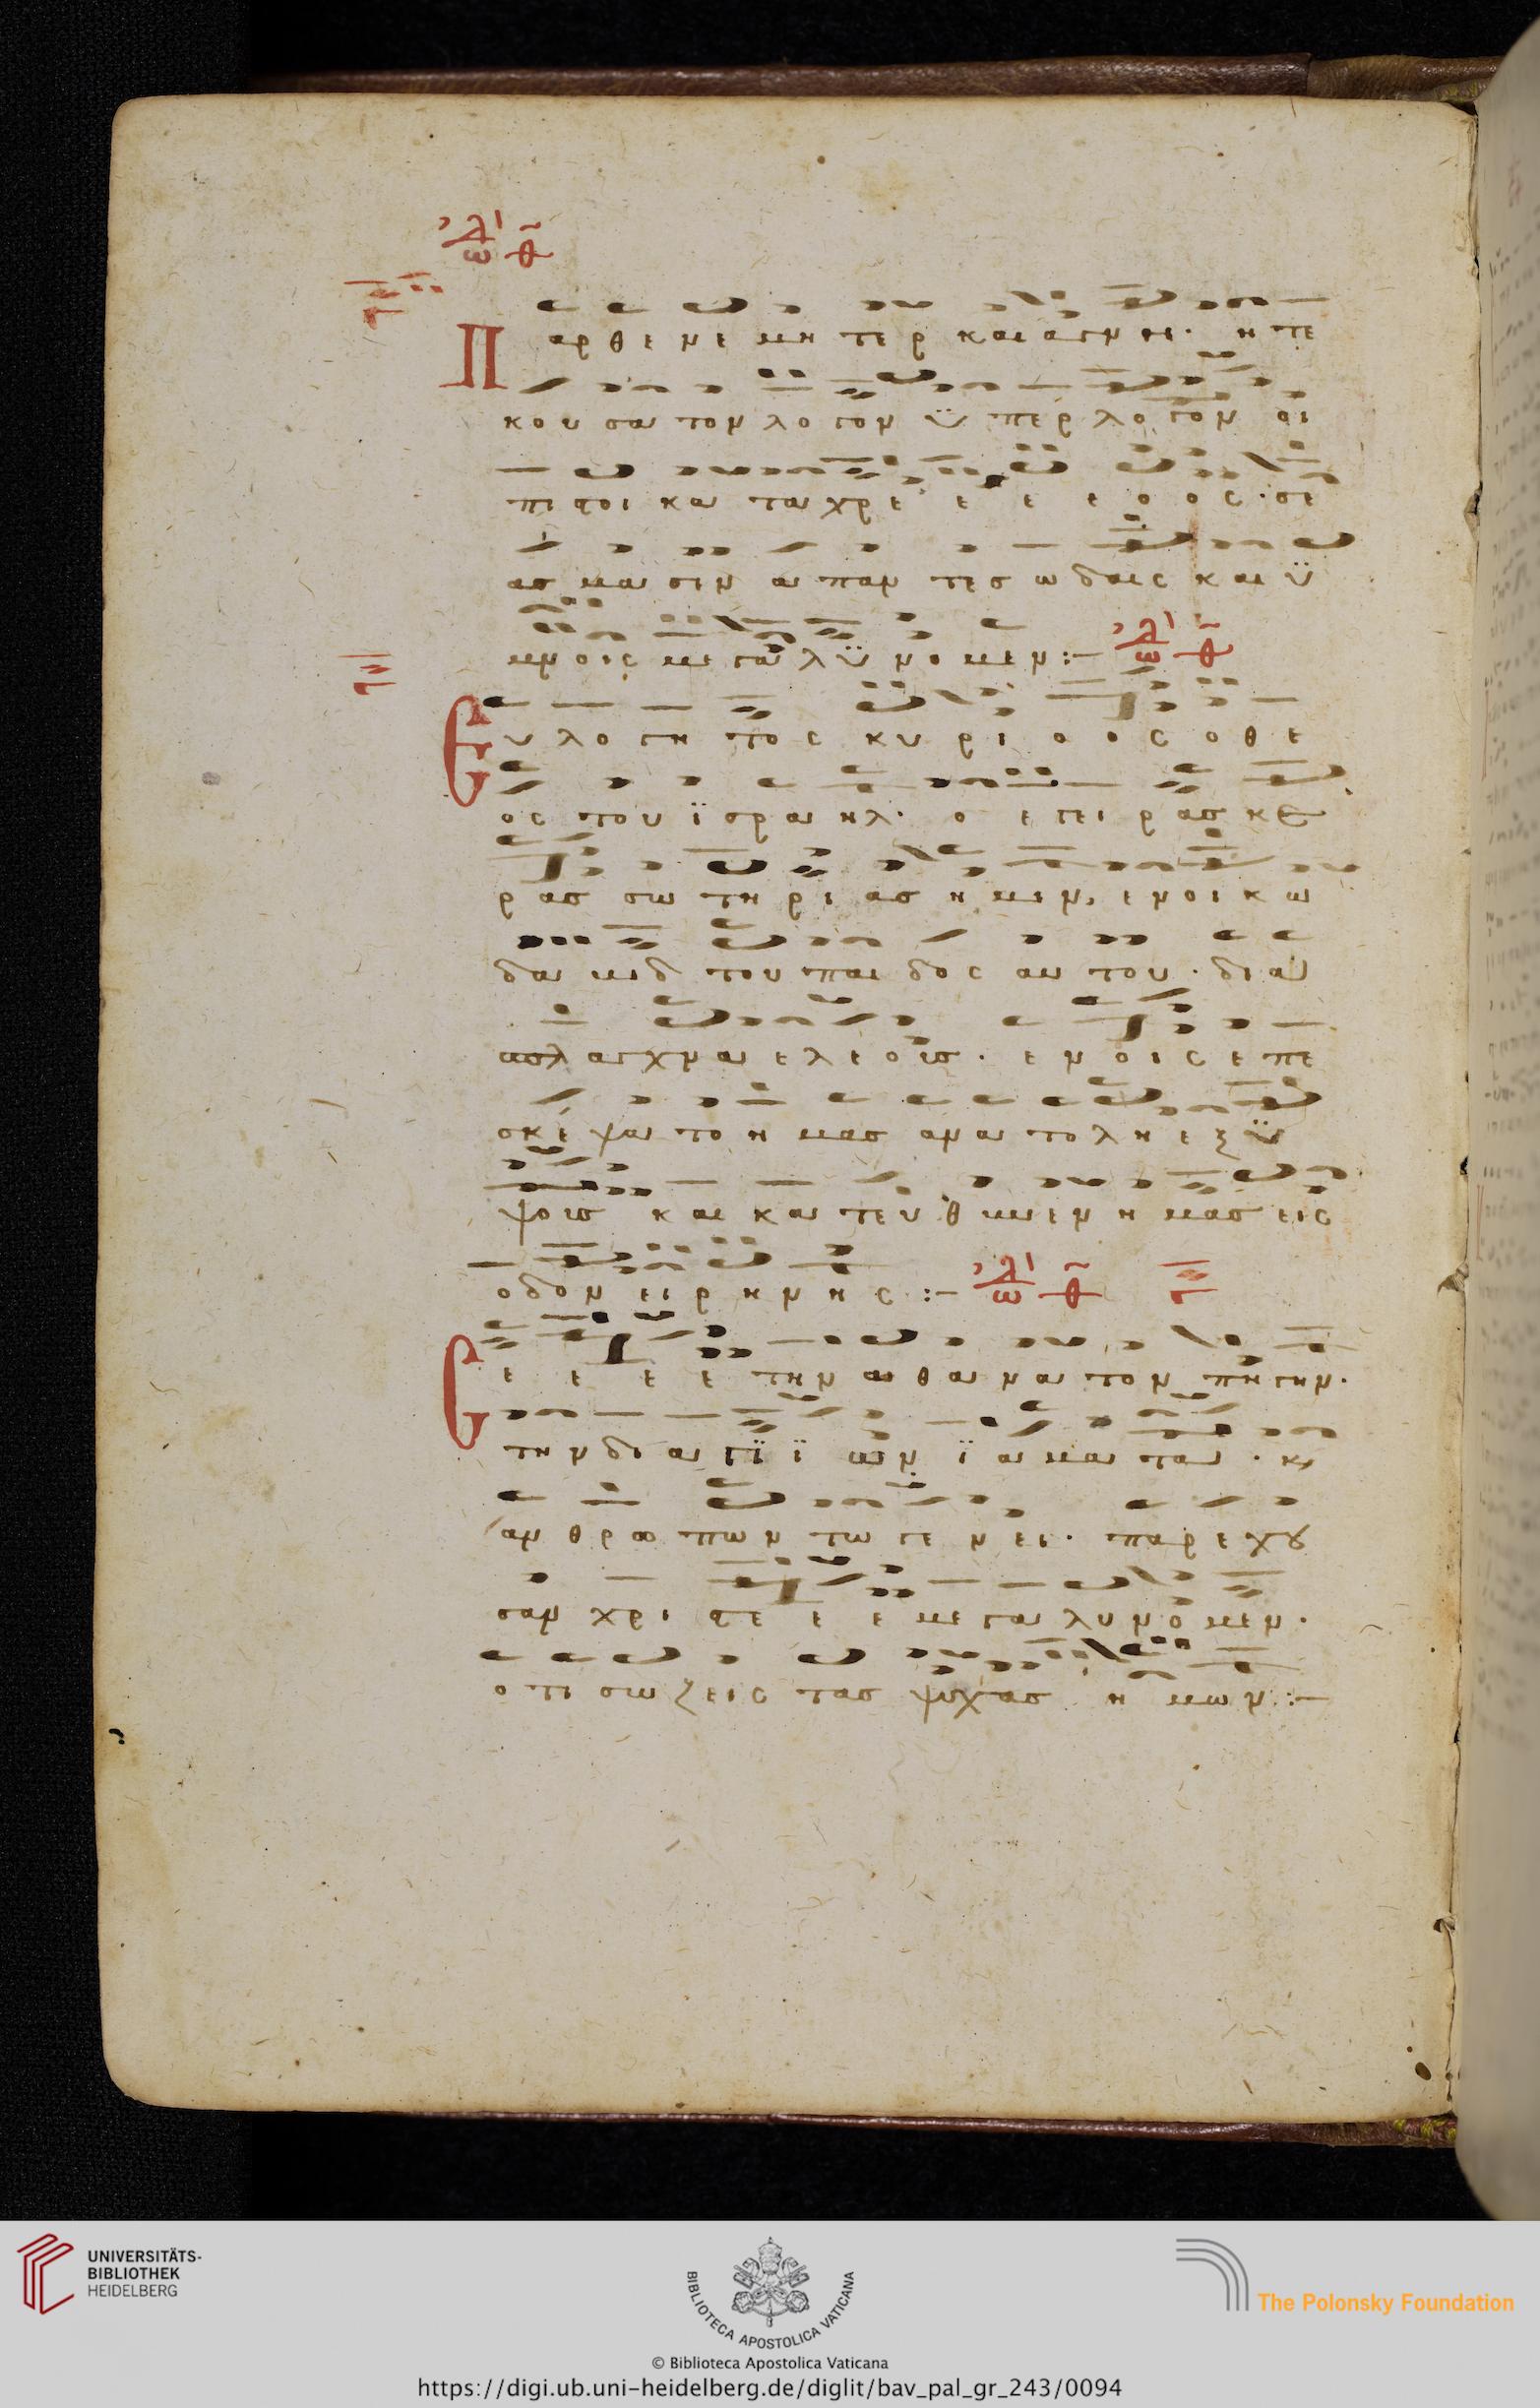 ωλι θ
Παρθενε μητερ και αγνη· η τε
κουσα τον λογον ϋπερ λογον οι
πιστοι κατα χρε ε ε ε ο ος· σε
ασμασιν απαντες ωδαις και ϋ
μνοις μεγαλϋνομεν :– ωλι θ
Ευλογητος κυρι ο ος ο θε
ος του ϊσραηλ· ο εγειρας κε
ρας σωτηριας ημιν, εν οικω
δαυιδ του παιδος αυτου· δια
σπλαγχνα ελεους· εν οις επε
σκεψατο ημας ανατολη εξ ϋ
ψους και κατευθυνειν ημας εις
οδον ειρηνης :– ωλι θ
Σε ε ε ε την αθανατον πηγην·
την δι α γϊ ϊ ων ϊαματα· και
ανθρωπων τω γενει· παρεχου
σαν χριστε ε ε μεγαλυνομεν·
οτι σωζεις τας ψυχας ημων :–
UNIVERSITÄTS-
BIBLIOTHEK
HEIDELBERG
BIBLIOTECA APOSTOLICA VATICANA
The Polonsky Foundation
© Biblioteca Apostolica Vaticana
https://digi.ub.uni-heidelberg.de/diglit/bav_pal_gr_243/0094